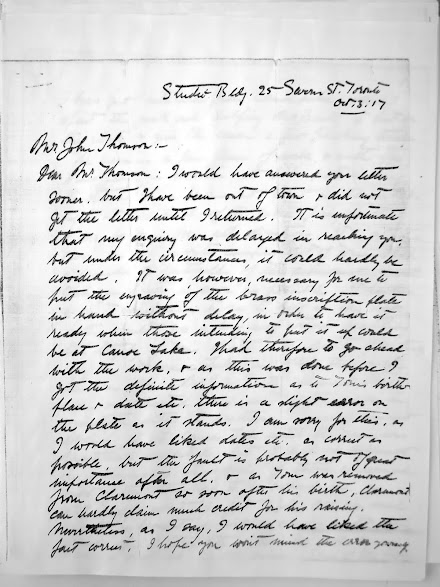 Studio Bldg. 25 Severn St. Toronto
Oct. 3:17
Mr John Thomson:-
Dear Mr. Thomson: I would have answered your letter
sooner. but I have been out of town & did not
get the letter until I returned. It is unfortunate
that my enquiry was delayed in reaching you,
but under the circumstances, it could hardly be
avoided. It was, however, necessary for me to
put the engraving of the brass inscription plate
in hand without delay, in order to have it
ready when those intending to put it up could
be at Canoe Lake. I had therefore to go ahead
with the work, & as this was done before I
got the definite information as to Tom's birth
place & date etc. there is a slight error on
the plate as it stands. I am sorry for this, as
I would have liked dates etc. as correct as
possible, but the fault is probably not of great
importance after all, & as Tom was removed
from Claremont so soon after his birth, Claremont
can hardly claim much credit for his raising.
Nevertheless, as I say, I would have liked the
fact correct; I hope you won't mind the error